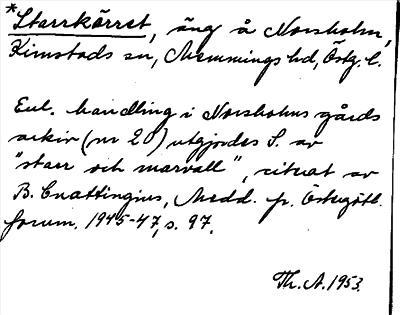 *Starrkärret, äng å Norsholm,
Kimstads sn, Memmings hd, Östg. l.
Enl. handling i Norsholms gårds
arkiv (nr 20) utgjordes S. av
"starr och marvall", citerat av
B. Cnattingius, Medd. fr. Östergötl.
forum. 1945-47, s. 97.
Th. A. 1953.